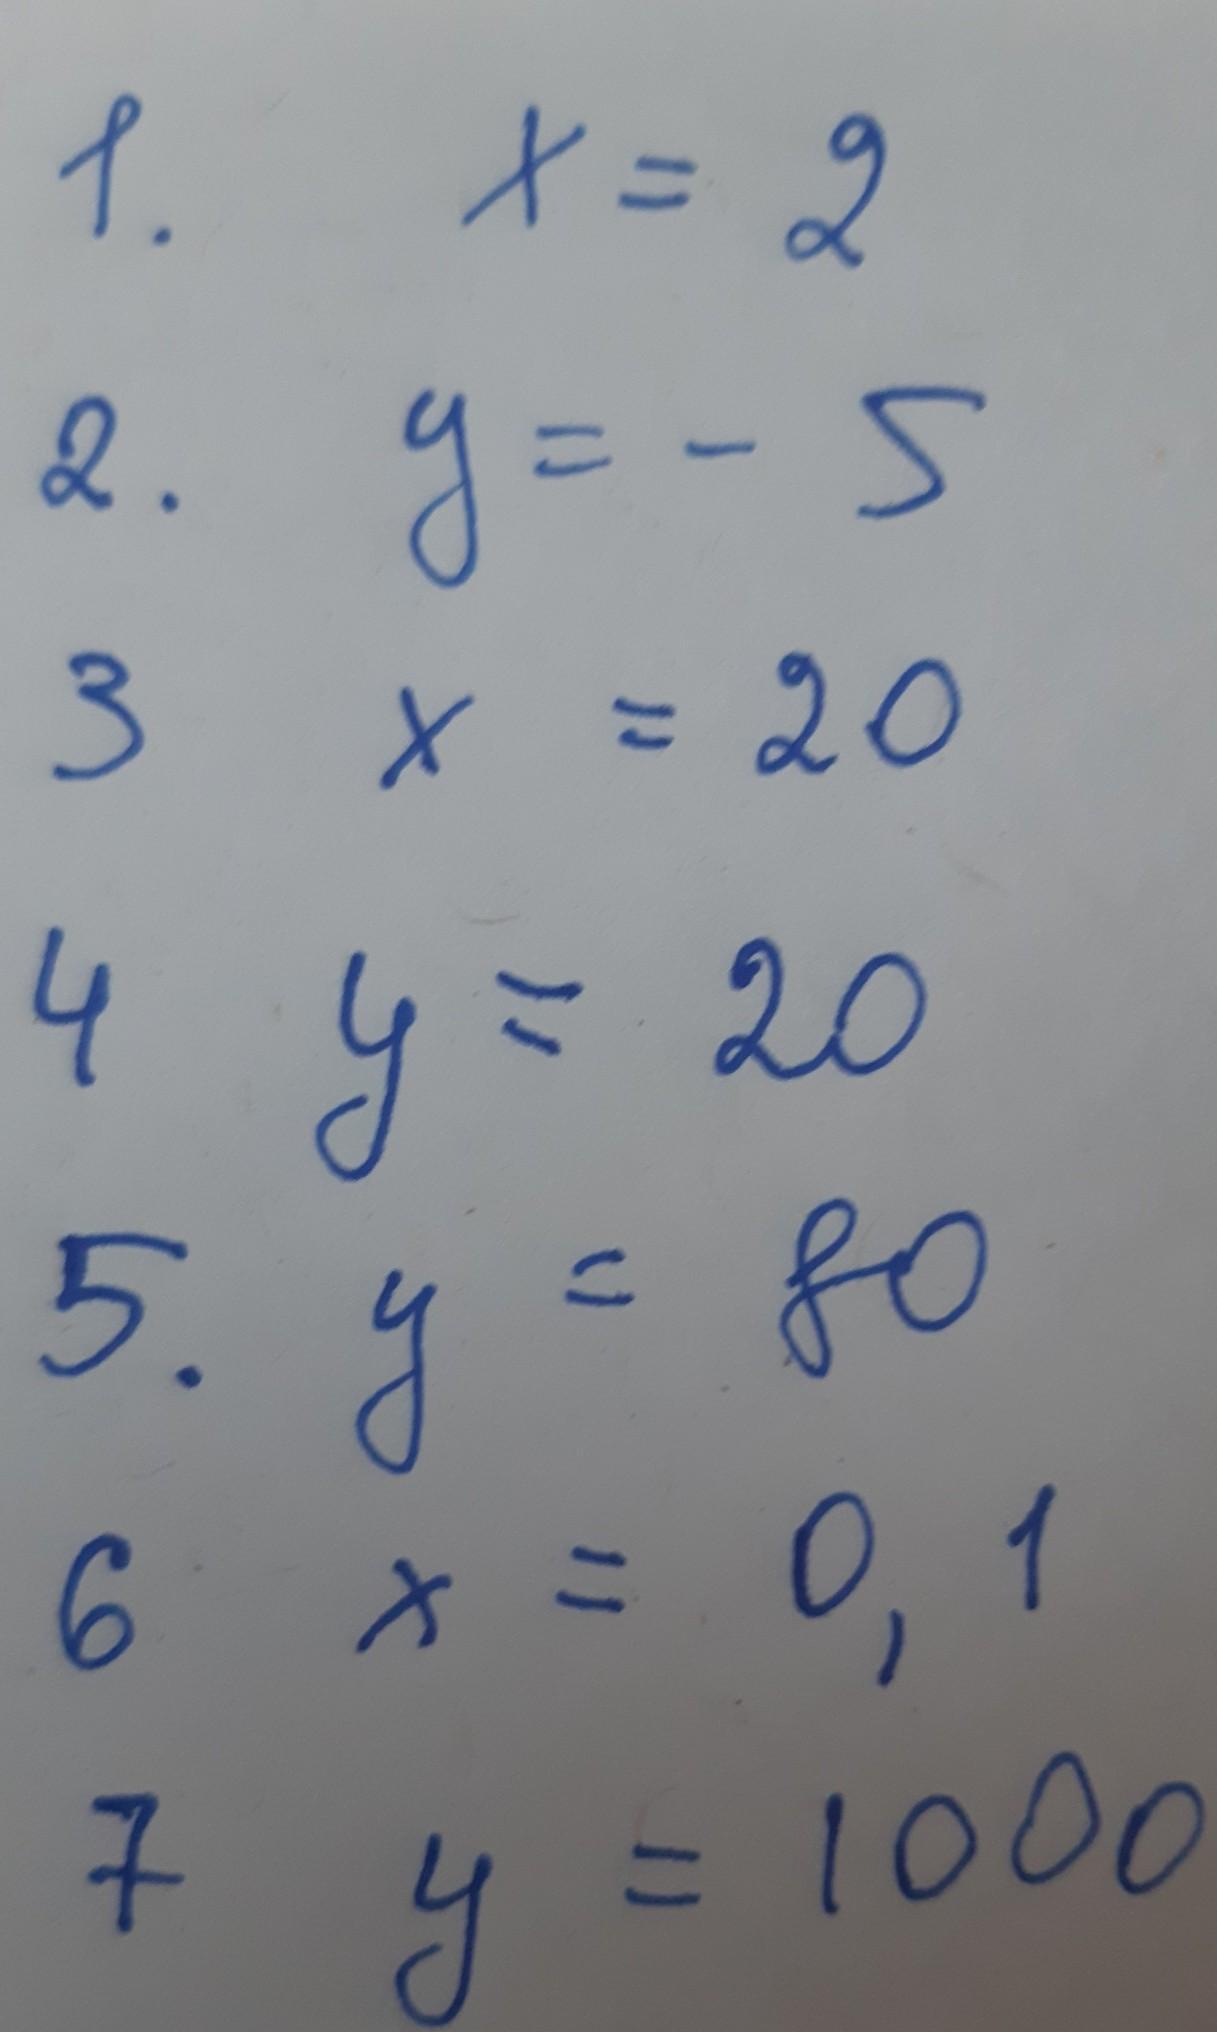 1. x = 2
2. y = - 5
3 x = 20
4 y = 20
5. y = 80
6 x = 0,1
7 y = 1000